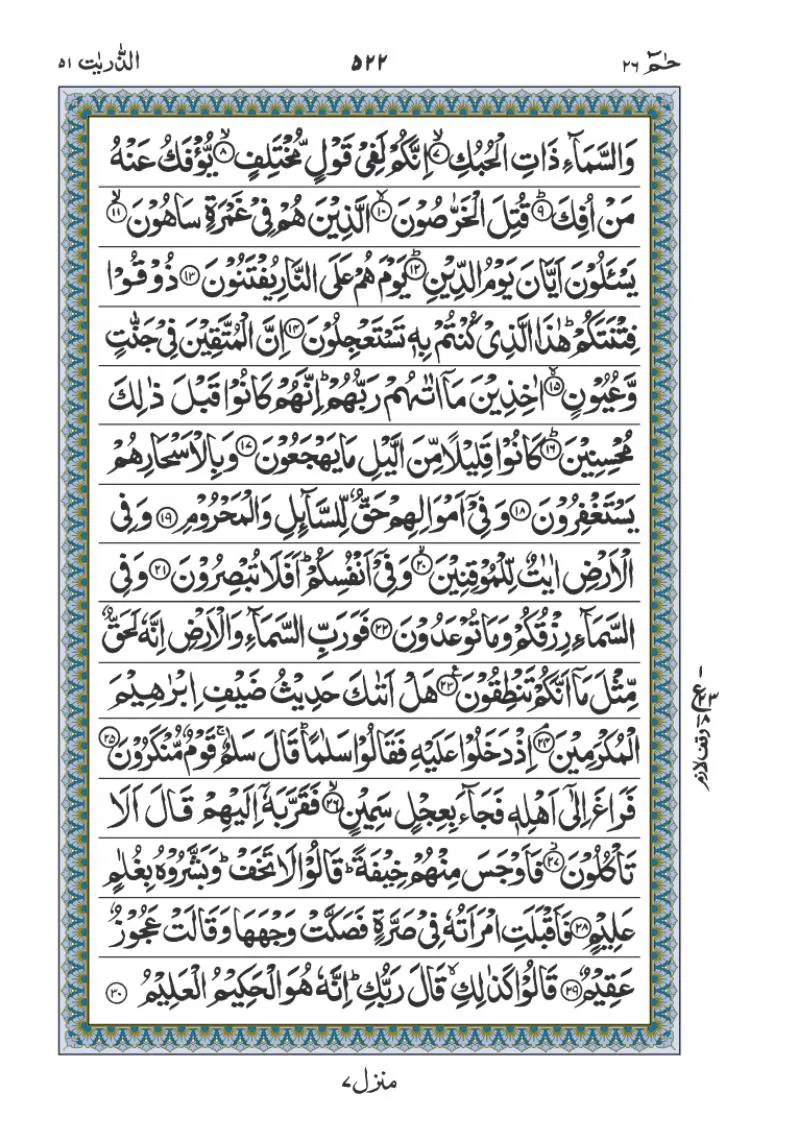 حٰمٓ ۲۶ ۵۲۲ الذّٰریٰت ۵۱
وَالسَّمَآءِ ذَاتِ الْحُبُكِ ۙ﴿۷﴾ اِنَّكُمْ لَفِیْ قَوْلٍ مُّخْتَلِفٍ ۙ﴿۸﴾ یُّؤْفَكُ عَنْهُ
مَنْ اُفِكَ ؕ﴿۹﴾ قُتِلَ الْخَرّٰصُوْنَ ۙ﴿۱۰﴾ الَّذِیْنَ هُمْ فِیْ غَمْرَةٍ سَاهُوْنَ ۙ﴿۱۱﴾
یَسْـَٔلُوْنَ اَیَّانَ یَوْمُ الدِّیْنِ ؕ﴿۱۲﴾ یَوْمَ هُمْ عَلَی النَّارِ یُفْتَنُوْنَ ﴿۱۳﴾ ذُوْقُوْا
فِتْنَتَكُمْ ؕ هٰذَا الَّذِیْ كُنْتُمْ بِهٖ تَسْتَعْجِلُوْنَ ﴿۱۴﴾ اِنَّ الْمُتَّقِیْنَ فِیْ جَنّٰتٍ
وَّعُیُوْنٍ ۙ﴿۱۵﴾ اٰخِذِیْنَ مَاۤ اٰتٰىهُمْ رَبُّهُمْ ؕ اِنَّهُمْ كَانُوْا قَبْلَ ذٰلِكَ
مُحْسِنِیْنَ ؕ﴿۱۶﴾ كَانُوْا قَلِیْلًا مِّنَ الَّیْلِ مَا یَهْجَعُوْنَ ﴿۱۷﴾ وَبِالْاَسْحَارِ هُمْ
یَسْتَغْفِرُوْنَ ﴿۱۸﴾ وَفِیْۤ اَمْوَالِهِمْ حَقٌّ لِّلسَّآىِٕلِ وَالْمَحْرُوْمِ ﴿۱۹﴾ وَفِی
الْاَرْضِ اٰیٰتٌ لِّلْمُوْقِنِیْنَ ۙ﴿۲۰﴾ وَفِیْۤ اَنْفُسِكُمْ ؕ اَفَلَا تُبْصِرُوْنَ ﴿۲۱﴾ وَفِی
السَّمَآءِ رِزْقُكُمْ وَمَا تُوْعَدُوْنَ ﴿۲۲﴾ فَوَرَبِّ السَّمَآءِ وَالْاَرْضِ اِنَّهٗ لَحَقٌّ
مِّثْلَ مَاۤ اَنَّكُمْ تَنْطِقُوْنَ ﴿۲۳﴾ هَلْ اَتٰىكَ حَدِیْثُ ضَیْفِ اِبْرٰهِیْمَ
الْمُكْرَمِیْنَ ۘ﴿۲۴﴾ اِذْ دَخَلُوْا عَلَیْهِ فَقَالُوْا سَلٰمًا ؕ قَالَ سَلٰمٌ ۚ قَوْمٌ مُّنْكَرُوْنَ ﴿۲۵﴾
فَرَاغَ اِلٰۤی اَهْلِهٖ فَجَآءَ بِعِجْلٍ سَمِیْنٍ ۙ﴿۲۶﴾ فَقَرَّبَهٗۤ اِلَیْهِمْ قَالَ اَلَا
تَاْكُلُوْنَ ؗ﴿۲۷﴾ فَاَوْجَسَ مِنْهُمْ خِیْفَةً ؕ قَالُوْا لَا تَخَفْ ؕ وَبَشَّرُوْهُ بِغُلٰمٍ
عَلِیْمٍ ﴿۲۸﴾ فَاَقْبَلَتِ امْرَاَتُهٗ فِیْ صَرَّةٍ فَصَكَّتْ وَجْهَهَا وَقَالَتْ عَجُوْزٌ
عَقِیْمٌ ﴿۲۹﴾ قَالُوْا كَذٰلِكِ ۙ قَالَ رَبُّكِ ؕ اِنَّهٗ هُوَ الْحَكِیْمُ الْعَلِیْمُ ﴿۳۰﴾
وقف لازم
منزل ۷